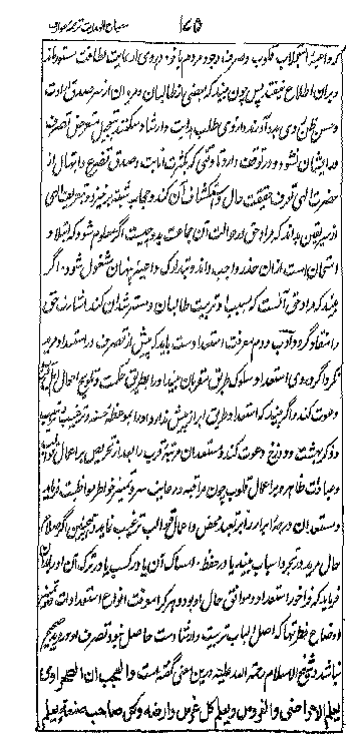 ۱۷۵
مصباح الهدایت ترجمه عوارف
که داعیه استجلاب قلوب و صرف وجوه مردم با خود در وی از غایت لطافت مستور ماند
و بران اطلاع نیفتد پس چون بیند که بعضی از طالبان و مریدان از سر صدق ارادت
و حسن ظن روی بدو آرند و از وی طلب هدایت و ارشاد میکنند بتعجیل متعرض تصرف
در ایشان نشود و در توقف دارد تا وقتی که بکثرت انابت و صدق تضرع و ابتهال از
حضرت الهی تعرف حقیقت حال و استکشاف آن کند و حجاب شبهه برخیزد و بتعریف الهی
از سر یقین بداند که مراد حق در حوالت آن جماعت بدو چیست اگر معلوم شود که ابتلا و
امتحان است از ان حذر واجب داند و بتدارک داعیه پنهان مشغول شود و اگر
بیند که مراد حق آنست که بسبب او تربیت طالبان و مسترشدان کند اشارت حق
را منقاد گردد و آدب دوم معرفت استعداد است باید که پیش از تصرف در استعداد مرید
نگرد اگر در وی استعداد سلوک طریق مقربان بیند او را بطریق حکمت و تلویح احوال
دعوت کند و اگر بیند که استعداد طریق ابرار بیش ندارد او را بموعظه حسنه و ترغیب و ترهیب
و ذکر بهشت و دوزخ دعوت کند و مستعدان مرتبه قرب را بعد از تحریض بر اعمال
و عبادات ظاهر و بر اعمال قلوب چون مراقبه و رعایت سر و تمییز خواطر مواظبت فرماید
و مستعدان درجه ابرار را بر تعبد محض و اعمال قوالب ترغیب نماید و همچنین اگر صلاح
حال مرید در تجرد اسباب بیند یا در حفظ و امساک آن یا در کسب یا در ترک آن او را بدان
فرماید که فراخور استعداد و موافق حال او بود و هر کرا معرفت انواع استعدادات و تمییز
اوضاع فطرتها که اصل الباب تربیت و ارشاد است حاصل نبود تصرف او در مرید صحیح
نباشد و شیخ الاسلام رحمة الله علیه درین معنی گفته است و العجب ان الصحراوی
یعلم الاراضی و الغروس و یعلم کل غرس و ارضه و کل صاحب صنعة یعلم